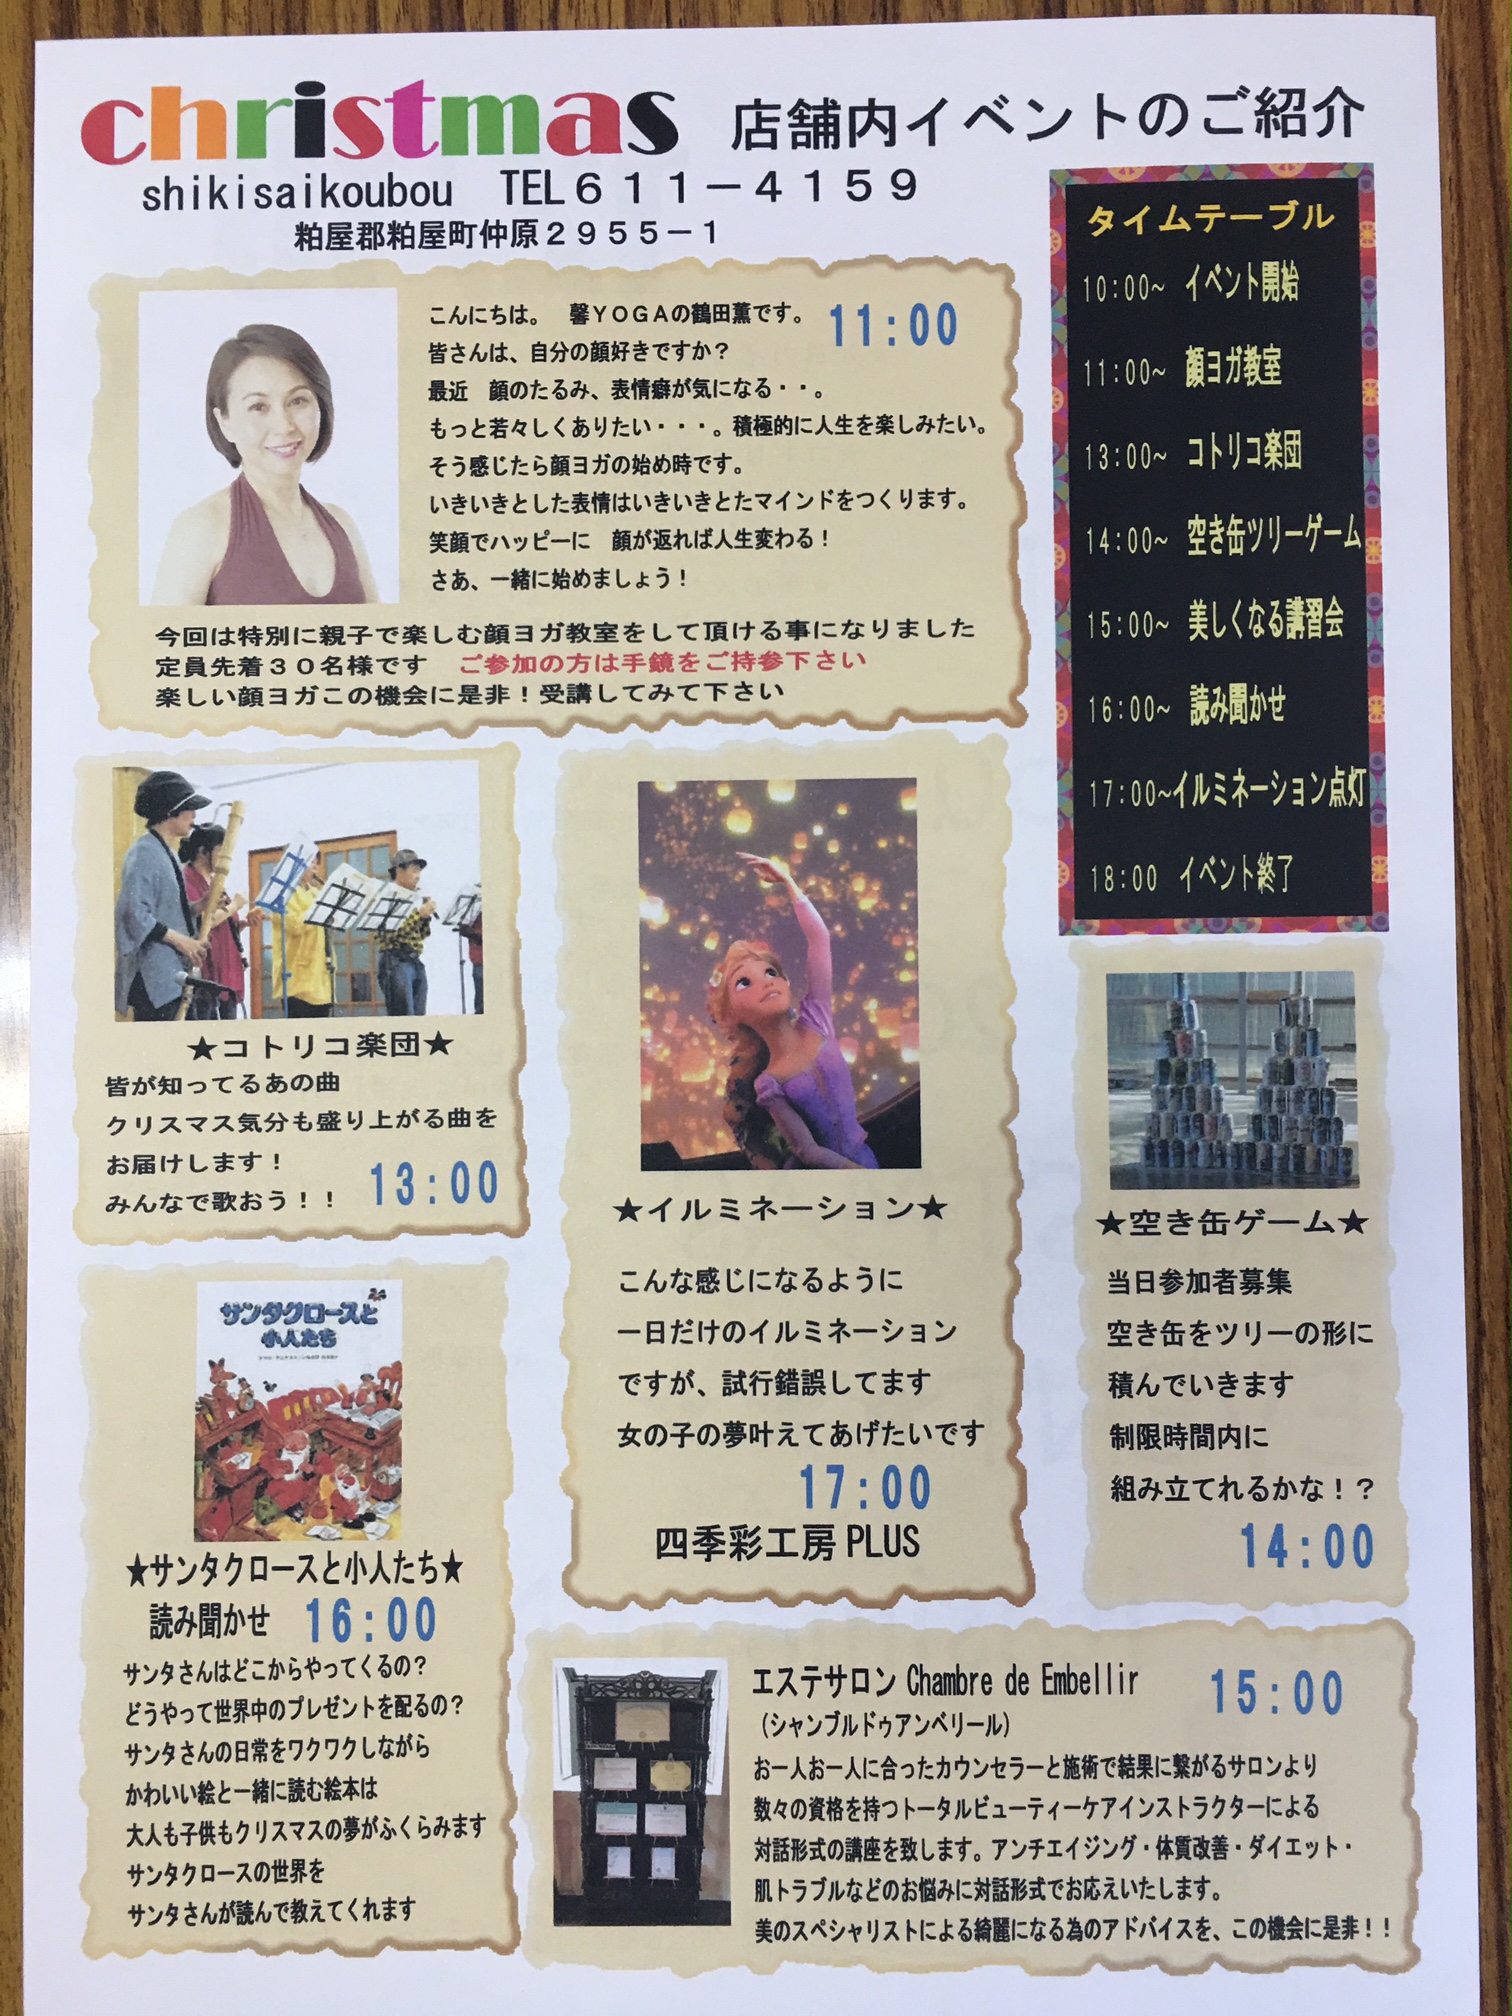 christmas 店舗内イベントのご紹介
shikisaikoubou TEL６１１－４１５９
粕屋郡粕屋町仲原２９５５－１
タイムテーブル
10:00~ イベント開始
11:00~ 顔ヨガ教室
13:00~ コトリコ楽団
14:00~ 空き缶ツリーゲーム
15:00~ 美しくなる講習会
16:00~ 読み聞かせ
17:00~イルミネーション点灯
18:00 イベント終了
こんにちは。 馨ＹＯＧＡの鶴田薫です。
11:00
皆さんは、自分の顔好きですか？
最近 顔のたるみ、表情癖が気になる・・。
もっと若々しくありたい・・・。積極的に人生を楽しみたい。
そう感じたら顔ヨガの始め時です。
いきいきとした表情はいきいきとたマインドをつくります。
笑顔でハッピーに 顔が返れば人生変わる！
さあ、一緒に始めましょう！
今回は特別に親子で楽しむ顔ヨガ教室をして頂ける事になりました
定員先着３０名様です ご参加の方は手鏡をご持参下さい
楽しい顔ヨガこの機会に是非！受講してみて下さい
★コトリコ楽団★
皆が知ってるあの曲
クリスマス気分も盛り上がる曲を
お届けします！
みんなで歌おう！！
13:00
★イルミネーション★
こんな感じになるように
一日だけのイルミネーション
ですが、試行錯誤してます
女の子の夢叶えてあげたいです
17:00
四季彩工房 PLUS
★空き缶ゲーム★
当日参加者募集
空き缶をツリーの形に
積んでいきます
制限時間内に
組み立てれるかな！？
14:00
サンタクロースと
小人たち
★サンタクロースと小人たち★
読み聞かせ 16:00
サンタさんはどこからやってくるの？
どうやって世界中のプレゼントを配るの？
サンタさんの日常をワクワクしながら
かわいい絵と一緒に読む絵本は
大人も子供もクリスマスの夢がふくらみます
サンタクロースの世界を
サンタさんが読んで教えてくれます
エステサロン Chambre de Embellir 15:00
（シャンブルドゥアンベリール）
お一人お一人に合ったカウンセラーと施術で結果に繋がるサロンより
数々の資格を持つトータルビューティーケアインストラクターによる
対話形式の講座を致します。アンチエイジング・体質改善・ダイエット・
肌トラブルなどのお悩みに対話形式でお応えいたします。
美のスペシャリストによる綺麗になる為のアドバイスを、この機会に是非！！